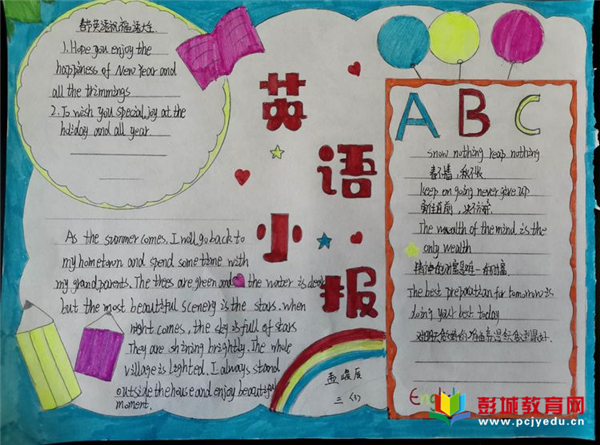 春节英语祝福语大全
1. Hope you enjoy the
happiness of New Year and
all the trimmings
2. To wish you special joy at the
holiday and all year
英
语
小
报
As the summer comes, I will go back to
my hometown and spend some time with
my grandparents. The trees are green and the water is deep
but the most beautiful scenery is the stars. when
night comes, the sky is full of stars
They are shining brightly. The whole
village is lighted. I always stand
outside the house and enjoy beautiful
moment.
ABC
snow nothing reap nothing
春不播，秋不收
keep on going never give up
勇往直前，决不放弃
The wealth of the mind is the
only wealth
精神的财富是唯一的财富
The best preparation for tomorrow is
doing your best today
对明天做好的准备就是今天做到最好
三（1）
Engl
彭城教育网
www.pcjyedu.cn